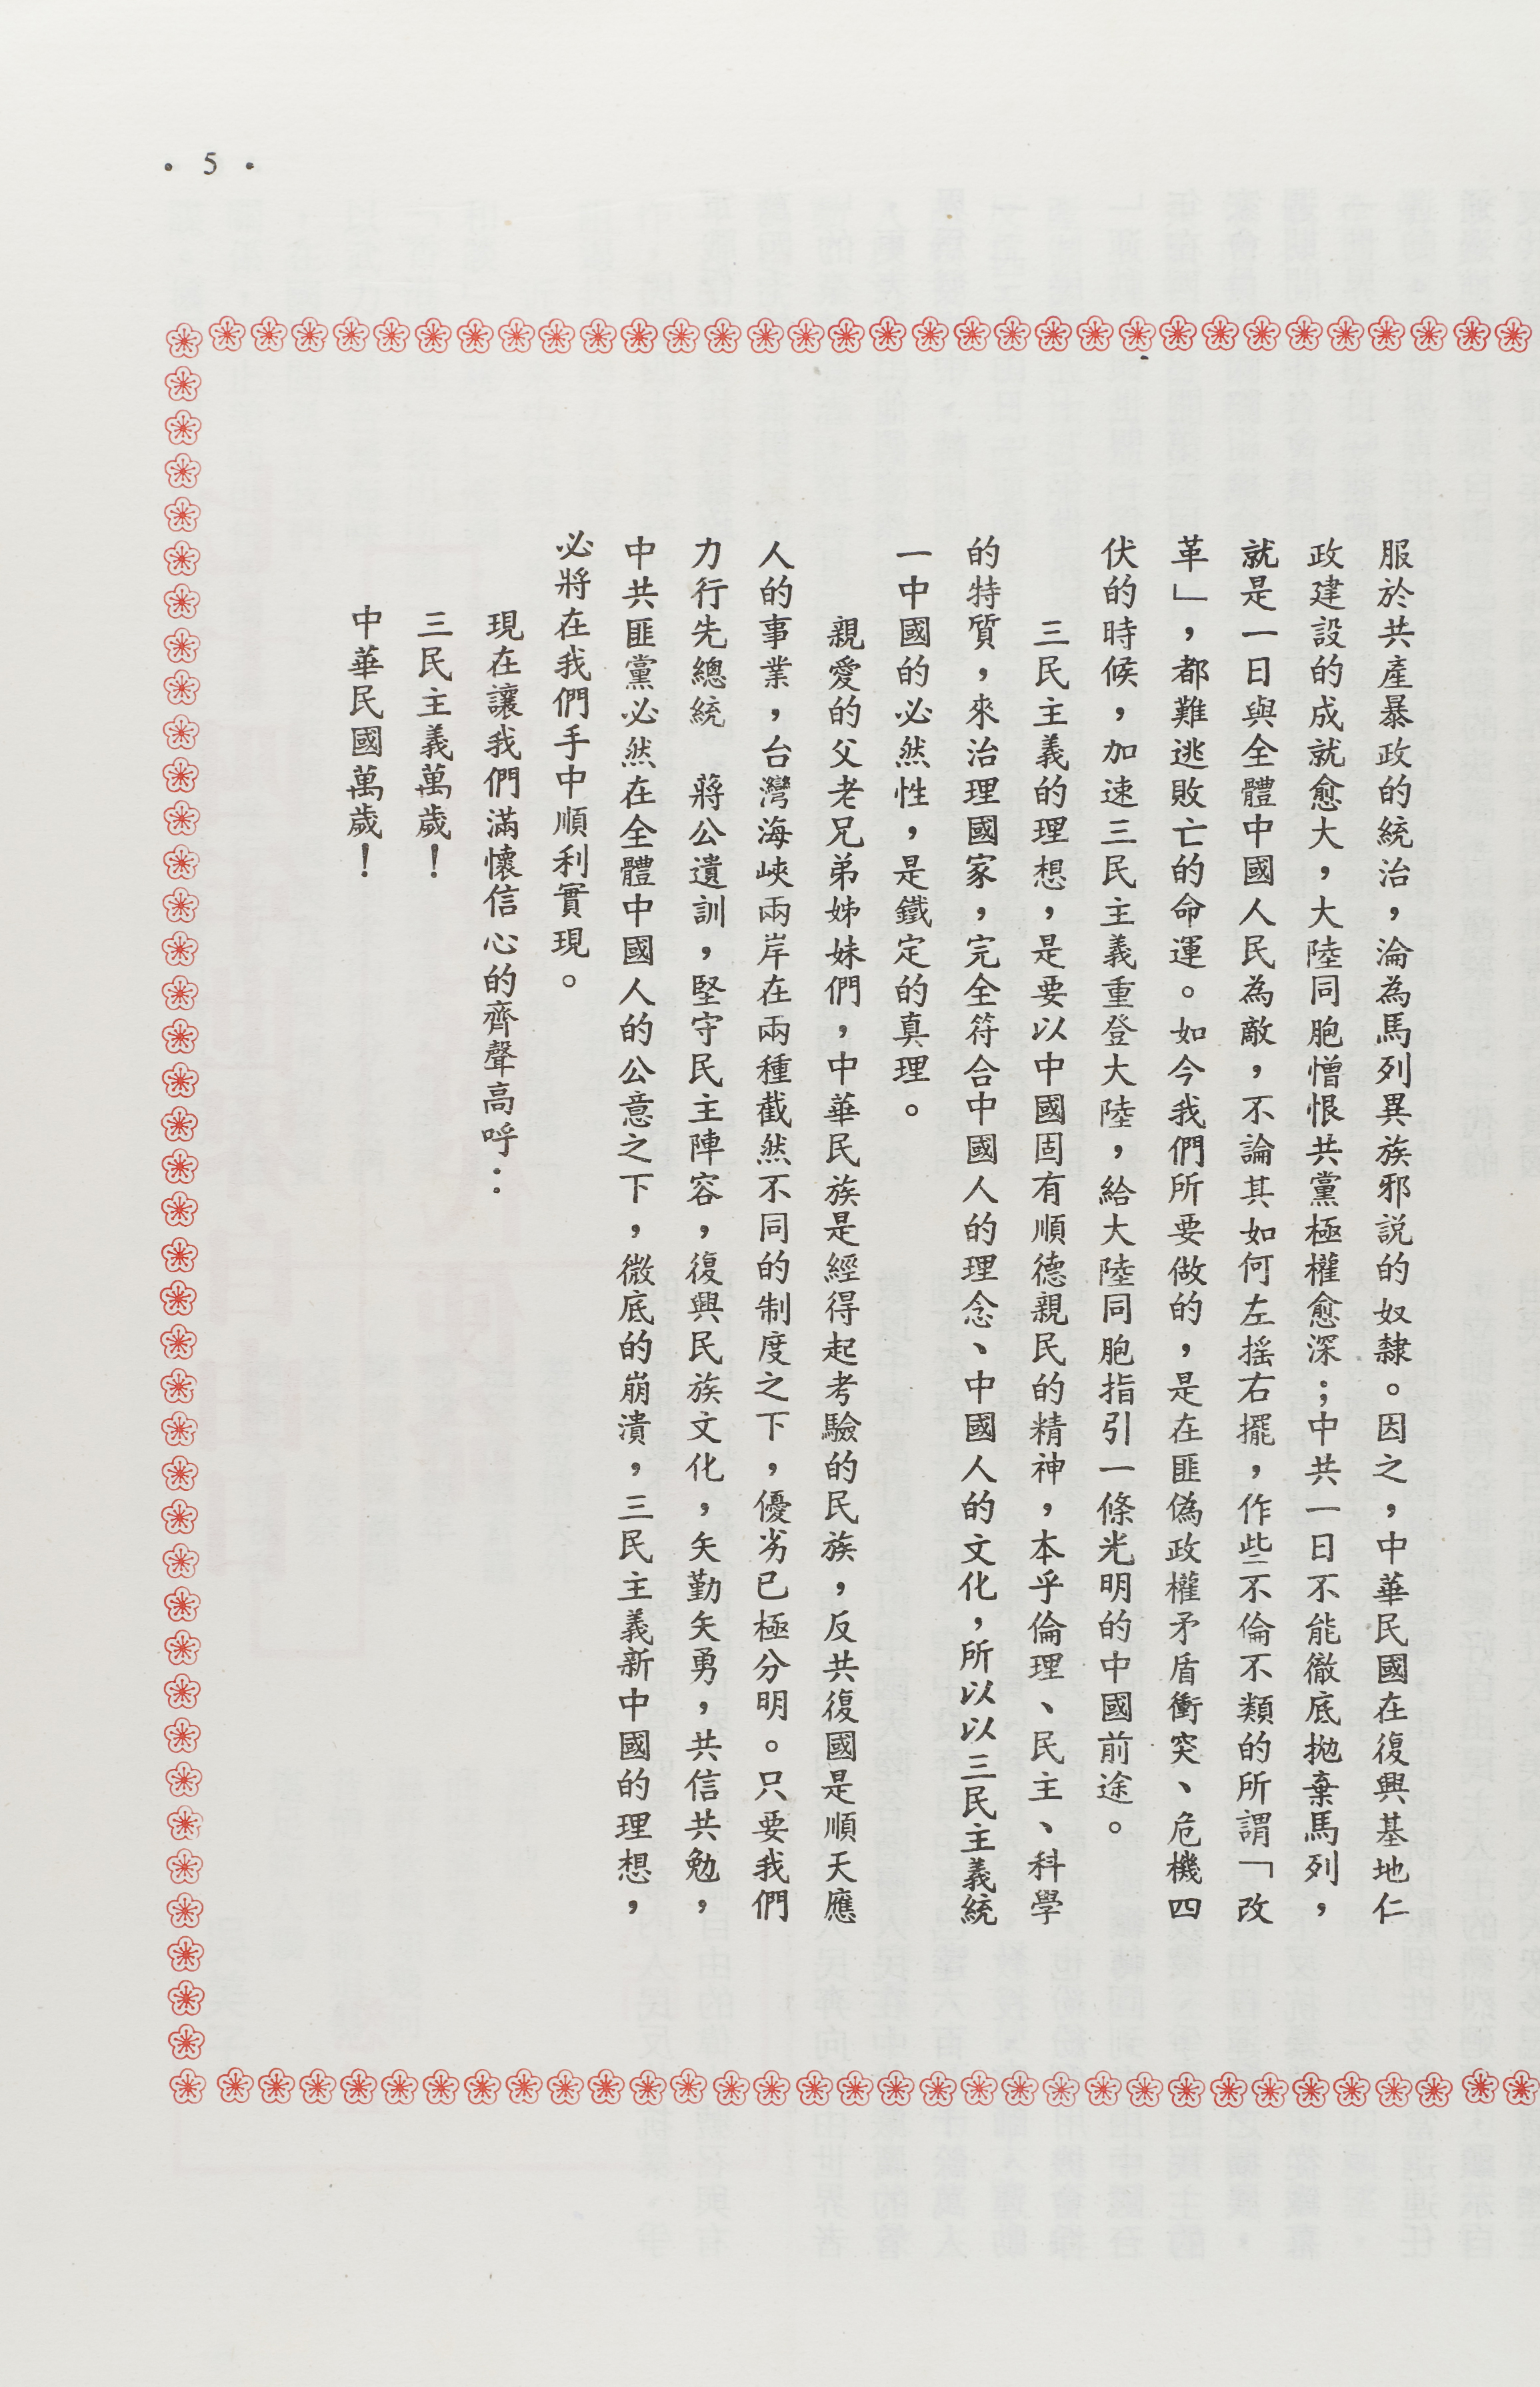 • 5 •
服於共產暴政的統治，淪為馬列異族邪說的奴隸。因之，中華民國在復興基地仁
政建設的成就愈大，大陸同胞憎恨共黨極權愈深；中共一日不能徹底拋棄馬列，
就是一日與全體中國人民為敵，不論其如何左搖右擺，作些不倫不類的所謂「改
革」，都難逃敗亡的命運。如今我們所要做的，是在匪偽政權矛盾衝突、危機四
伏的時候，加速三民主義重登大陸，給大陸同胞指引一條光明的中國前途。
三民主義的理想，是要以中國固有順德親民的精神，本乎倫理、民主、科學
的特質，來治理國家，完全符合中國人的理念、中國人的文化，所以以三民主義統
一中國的必然性，是鐵定的真理。
親愛的父老兄弟姊妹們，中華民族是經得起考驗的民族，反共復國是順天應
人的事業，台灣海峽兩岸在兩種截然不同的制度之下，優劣已極分明。只要我們
力行先總統　蔣公遺訓，堅守民主陣容，復興民族文化，矢勤矢勇，共信共勉，
中共匪黨必然在全體中國人的公意之下，微底的崩潰，三民主義新中國的理想，
必將在我們手中順利實現。
現在讓我們滿懷信心的齊聲高呼：
三民主義萬歲！
中華民國萬歲！